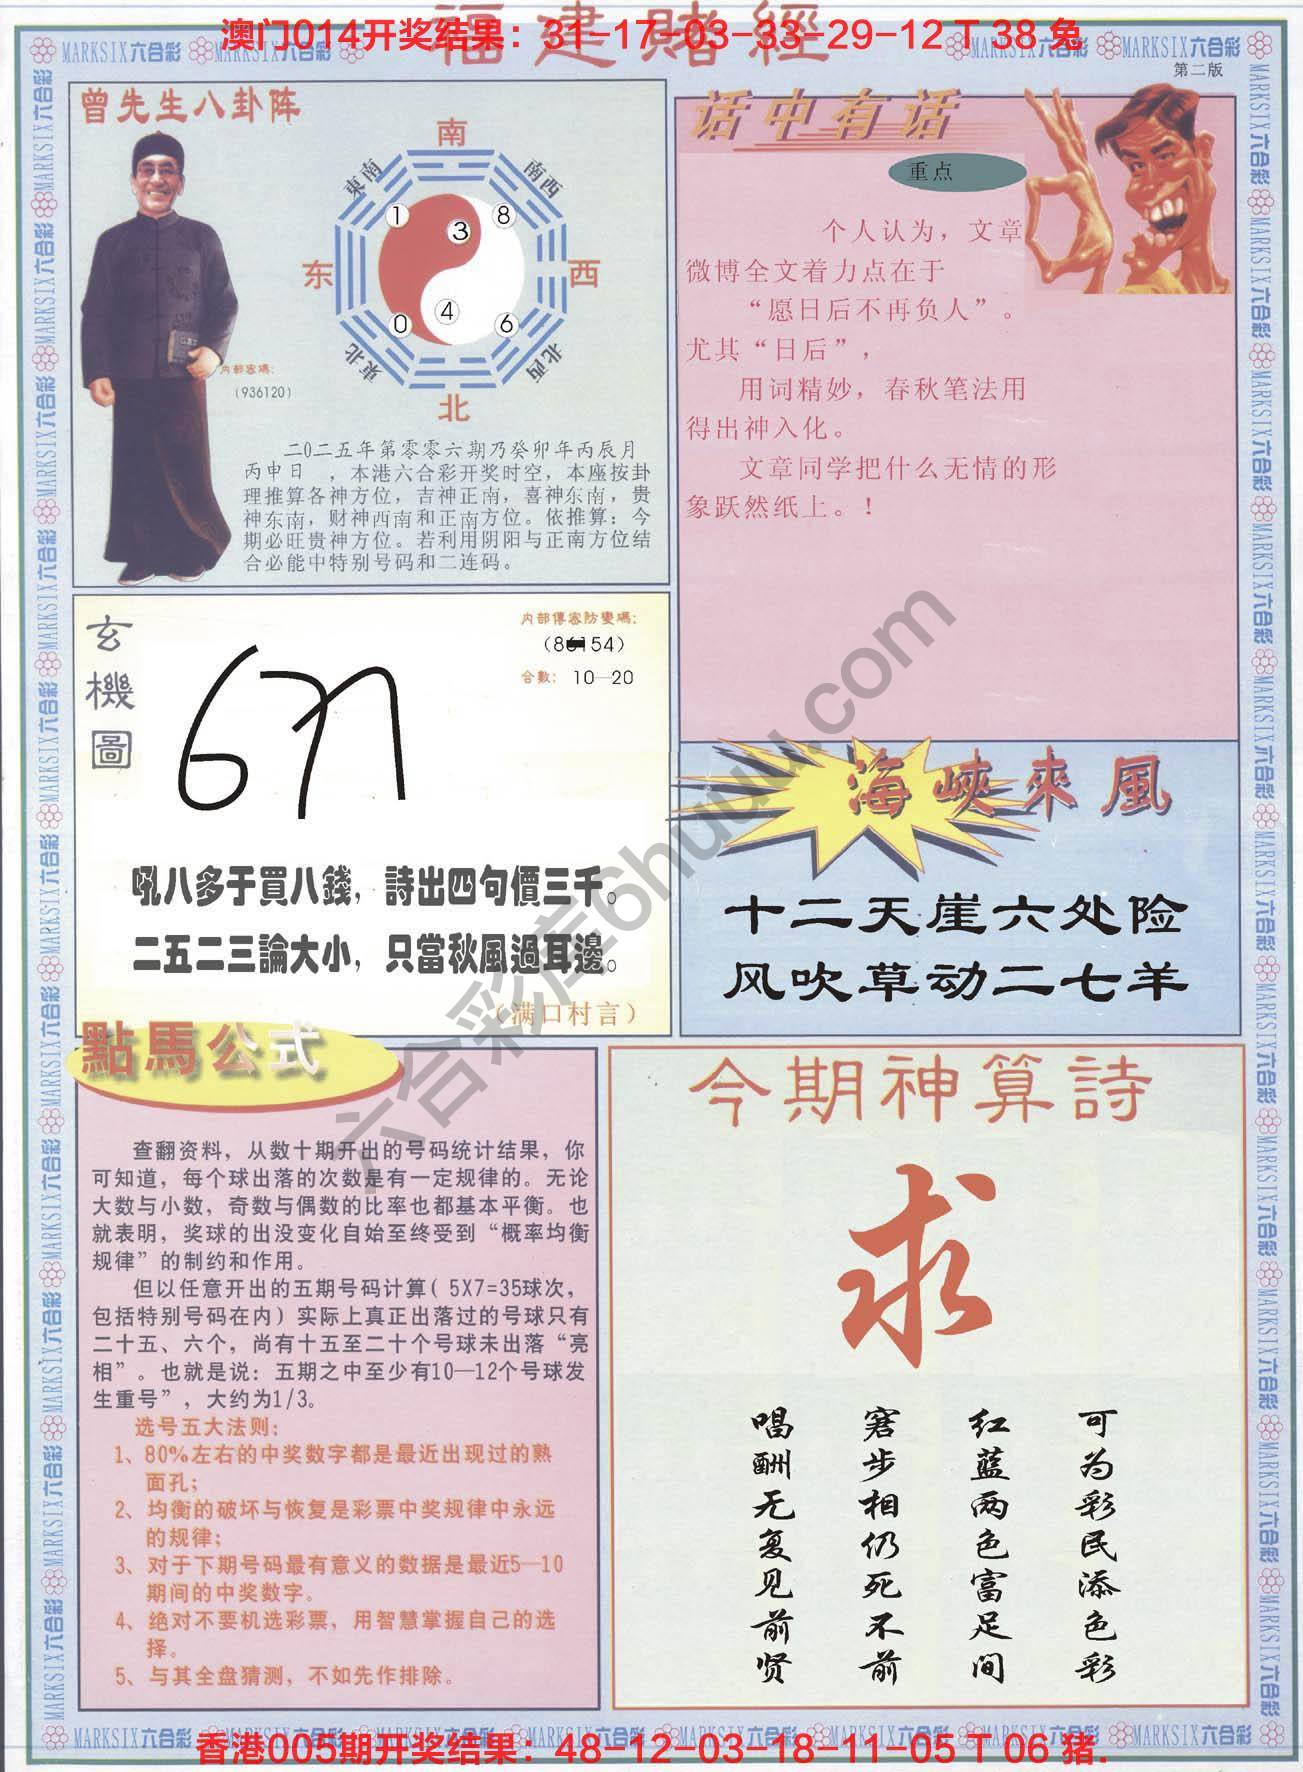 福建賭經
澳门014开奖结果：31-17-03-33-29-12 T 38 兔
MARKSIX六合彩 MARKSIX六合彩 MARKSIX六合彩 MARKSIX六合彩
第二版
曾先生八卦阵
南
東南 南西
1 8
3
东 西
4
0 6
東北 北西
北
内部密碼：
（936120）
二O二五年第零零六期乃癸卯年丙辰月
丙申日 ，本港六合彩开奖时空，本座按卦
理推算各神方位，吉神正南，喜神东南，贵
神东南，财神西南和正南方位。依推算：今
期必旺贵神方位。若利用阴阳与正南方位结
合必能中特别号码和二连码。
话中有话
重点
个人认为，文章
微博全文着力点在于
“愿日后不再负人”。
尤其“日后”，
用词精妙，春秋笔法用
得出神入化。
文章同学把什么无情的形
象跃然纸上。！
玄機圖
内部傳密防變碼：
（86154）
合數： 10—20
吼八多于買八錢，詩出四句價三千。
二五二三論大小，只當秋風過耳邊。
（满口村言）
海峽來風
十二天崖六处险
风吹草动二七羊
點馬公式
查翻资料，从数十期开出的号码统计结果，你
可知道，每个球出落的次数是有一定规律的。无论
大数与小数，奇数与偶数的比率也都基本平衡。也
就表明，奖球的出没变化自始至终受到“概率均衡
规律”的制约和作用。
但以任意开出的五期号码计算（5X7=35球次，
包括特别号码在内）实际上真正出落过的号球只有
二十五、六个，尚有十五至二十个号球未出落“亮
相”。也就是说：五期之中至少有10—12个号球发
生重号”，大约为1/3。
选号五大法则：
1、80%左右的中奖数字都是最近出现过的熟
面孔；
2、均衡的破坏与恢复是彩票中奖规律中永远
的规律；
3、对于下期号码最有意义的数据是最近5—10
期间的中奖数字。
4、绝对不要机选彩票，用智慧掌握自己的选
择。
5、与其全盘猜测，不如先作排除。
今期神算詩
求
可为彩民添色彩
红蓝两色富足间
窘步相仍死不前
唱酬无复见前贤
六合彩库6huuu.com
MARKSIX六合彩 MARKSIX六合彩 MARKSIX六合彩 MARKSIX六合彩
香港005期开奖结果：48-12-03-18-11-05 T 06 猪.